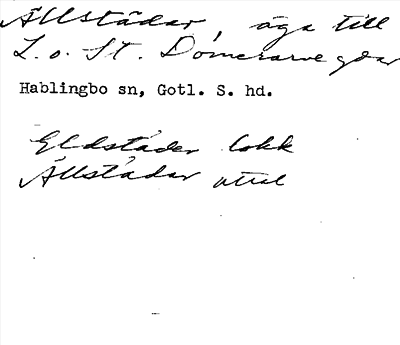 Ällstädar, äga till
L. o. St. Domerarve gdar
Hablingbo sn, Gotl. S. hd.
Eldstäder lokk
Ällstädar uttal